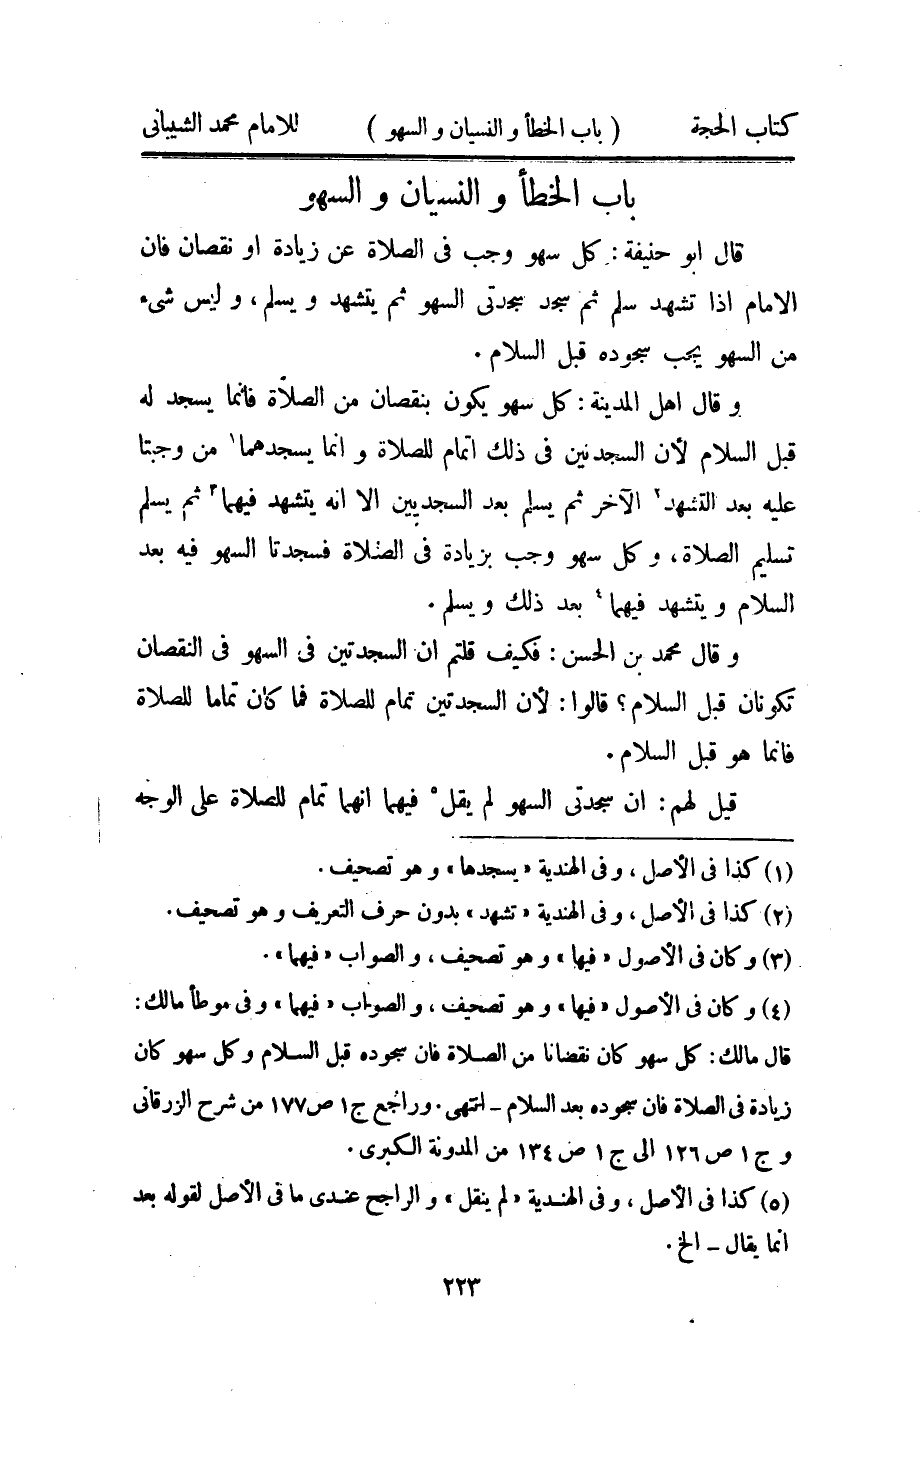 كتاب الحجة ( باب الخطأ و النسيان و السهو ) للامام محمد الشيبانى
باب الخطأ و النسيان و السهو
قال ابو حنيفة : كل سهو وجب فى الصلاة عن زيادة او نقصان فان
الامام اذا تشهد سلم ثم سجد سجدتى السهو ثم يتشهد و يسلم ، و ليس شىء
من السهو يجب سجوده قبل السلام .
و قال اهل المدينة : كل سهو يكون بنقصان من الصلاة فانما يسجد له
قبل السلام لأن السجدتين فى ذلك اتمام للصلاة و انما يسجدهما١ من وجبتا
عليه بعد التشهد٢ الآخر ثم يسلم بعد السجدتين الا انه يتشهد فيهما٣ ثم يسلم
تسليم الصلاة ، و كل سهو وجب بزيادة فى الصلاة فسجدتا السهو فيه بعد
السلام و يتشهد فيهما٤ بعد ذلك و يسلم .
و قال محمد بن الحسن : فكيف قلتم ان السجدتين فى السهو فى النقصان
تكونان قبل السلام ؟ قالوا : لأن السجدتين تمام للصلاة فما كان تماما للصلاة
فانما هو قبل السلام .
قيل لهم : ان سجدتى السهو لم يقل٥ فيهما انهما تمام للصلاة على الوجه
(١) كذا فى الأصل ، و فى الهندية « يسجدها » و هو تصحيف .
(٢) كذا فى الأصل ، و فى الهندية « تشهد » بدون حرف التعريف و هو تصحيف .
(٣) و كان فى الأصول « فيها » و هو تصحيف ، و الصواب « فيهما » .
(٤) و كان فى الأصول « فيها » و هو تصحيف ، و الصواب « فيهما » و فى موطأ مالك :
قال مالك : كل سهو كان نقصانا من الصلاة فان سجوده قبل السلام و كل سهو كان
زيادة فى الصلاة فان سجوده بعد السلام ـ انتهى . و راجع ج ١ ص ١٧٧ من شرح الزرقانى
و ج ١ ص ١٢٦ الى ج ١ ص ١٣٤ من المدونة الكبرى .
(٥) كذا فى الأصل ، و فى الهندية « لم ينقل » و الراجح عندى ما فى الأصل لقوله بعد
انما يقال ـ الخ .
٢٢٣